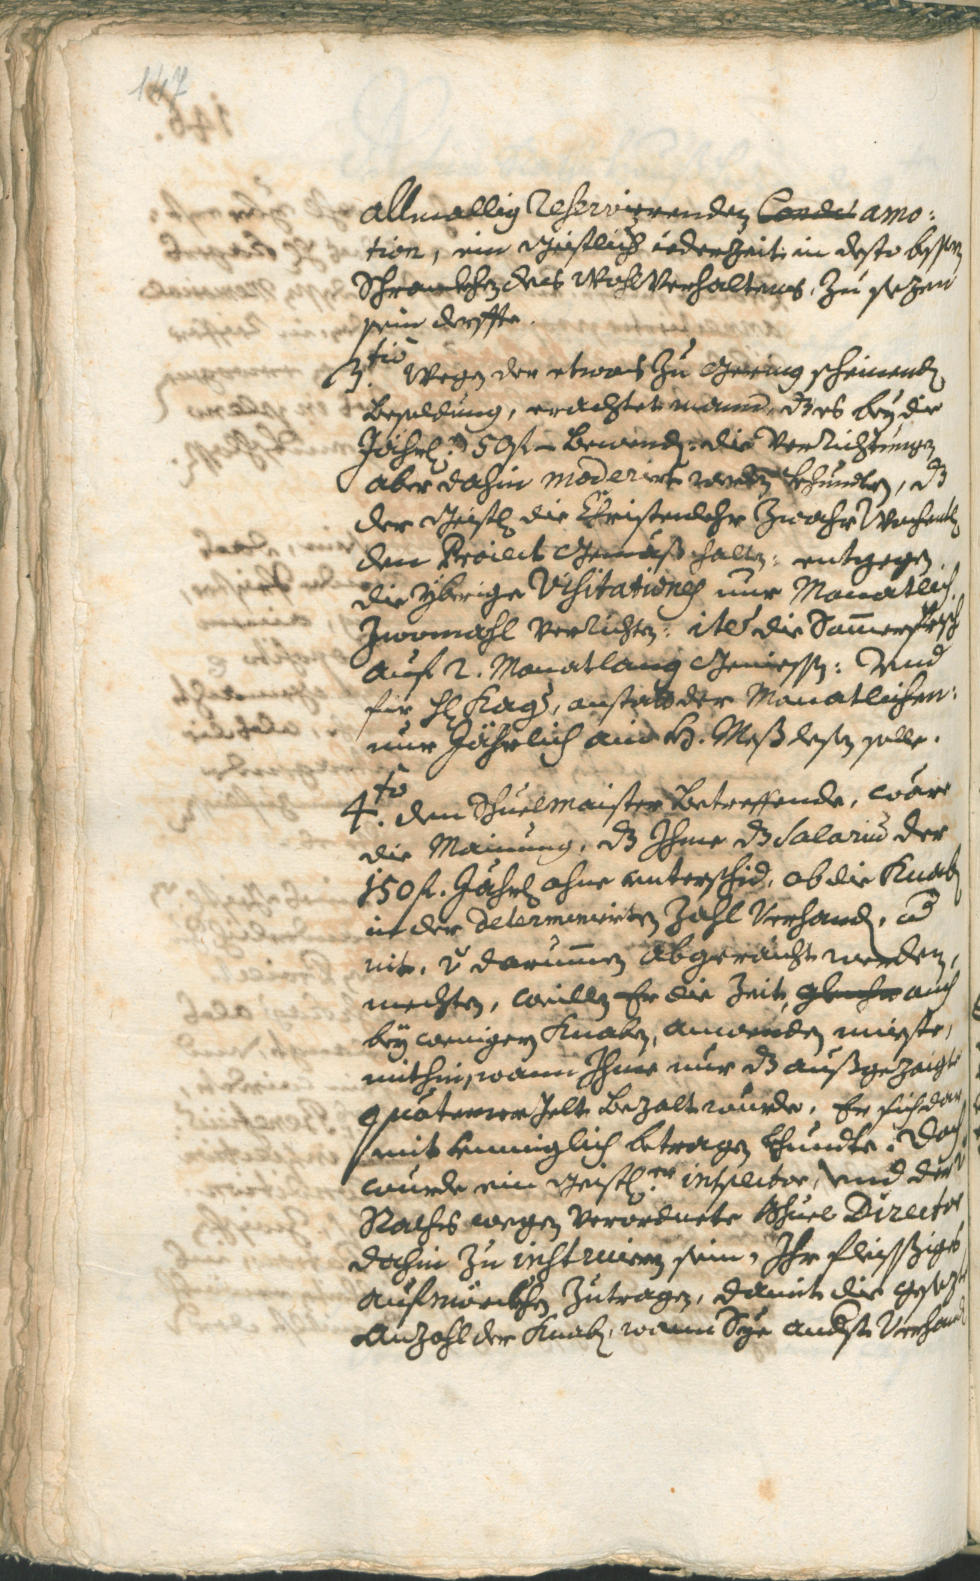 147
allmallig reservirenden amo:
tion, ein Geistlich iederzeit in desto bessern
Schranckhen des Wohl Verhaltens, zu sezen
sein derffte.
3.tio Wegen der etwas zu gering scheinendn
Besoldung, erachtet mann, dz es bey die
Jährl: 50 f. bewendn: die Verrichtungen
aber dahin moderirt werdn khundten, dz
der Geistl. die Christenlehr zwahr Wochentl.
dem Proiect gemäß halte: entgegen
die ybrige Visitationes nur Monatlich
zwomahl verrichten: item die
auf 2. Monat lang geniessen: Vnd
fir H. Kag, anstatt der Monatlichen:
nur Jährlich ain H. Meß lesen solle.
4.to den Schuelmaister betreffende, wäre
die Mainung, dz Ihme dz Salarium der
150 f. Jährl. ohne vnterschid, ob die Knabn
in der determinirten Zahl Verhandn, od
nit, darummen abgeraicht werden,
mechten, weillen Er die Zeit, auch
bey wenigen Knaben, anwenden mieste,
mithin, wann Ihme nur dz außgezaigte
quatember gelt bezalt wurde, Er sich dar
mit kemniglich betragen khundte. Doch
wurde ein Geistl.er inspector, vnd der
Raths wegen verordnete Schuel Director
dahin zu instruiren sein, Ihr fleissziges
aufmörckhen zutragen, damit die gesezte
Anzahl der Knabn, wann Sye anderst Verhandn